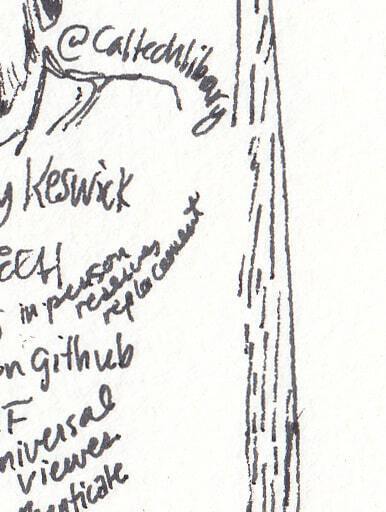 @Caltechlibary
y Keswick
ECH
in person
reserves
replacement
on github
F
niversal
viewer
henticate